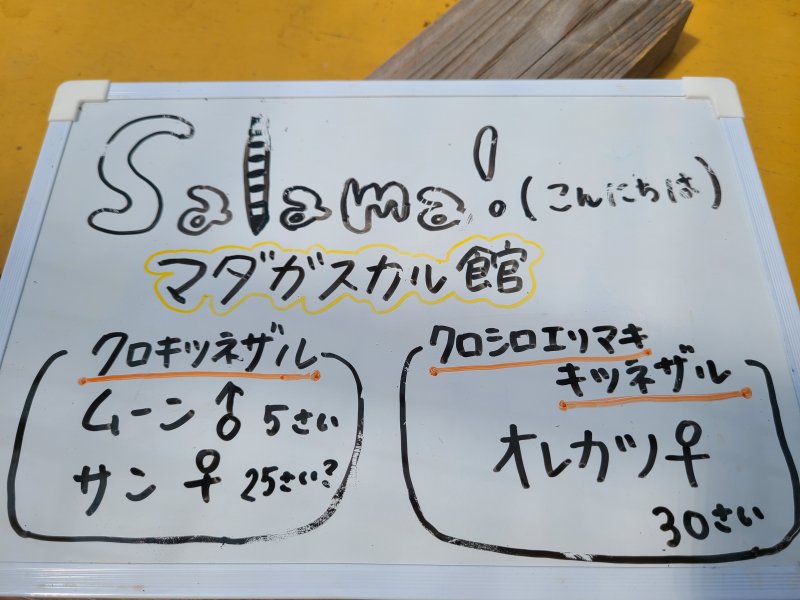 Salama!(こんにちは)
マダガスカル館
クロキツネザル
ムーン♂ 5さい
サン♀ 25さい?
クロシロエリマキ
キツネザル
オレガノ♀
30さい